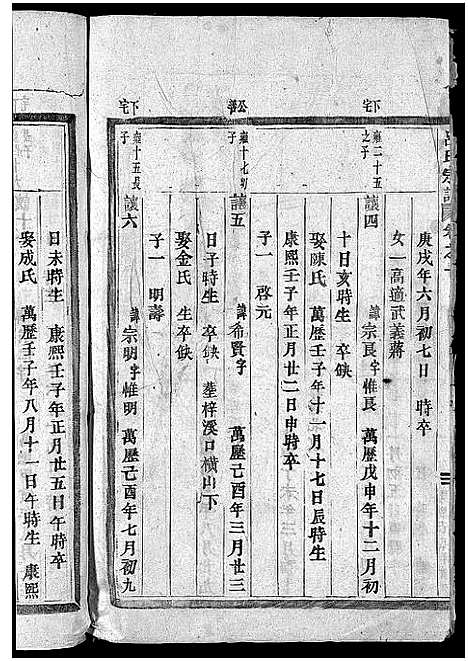 呂氏宗譜
庚戌年六月初七日 時卒
女一高適武義蔣
下宅
雍二十五之子
讓四 諱宗良字惟長 萬歷戊申年十二月初
十日亥時生 卒缺
娶陳氏 萬歷壬子年十一月十七日辰時生
康熙壬子年正月廿二日申時卒
子一 啓元
公善
雍十七幼子
讓五 諱希賢字 萬歷己酉年三月廿三
日子時生 卒缺 塟梓溪口橫山下
娶金氏 生卒缺
子一 明濤
下宅
雍十五長子
讓六 諱宗明字惟明 萬歷己酉年七月初九
日未時生 康熙壬子年正月廿五日午時卒
娶成氏 萬歷壬子年八月十一日午時生 康熙